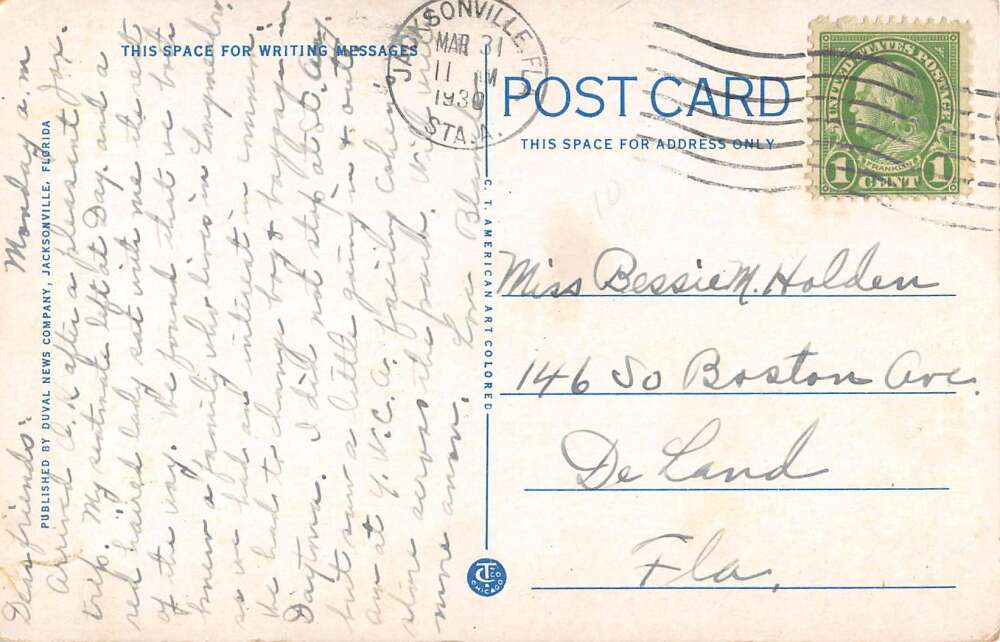 THIS SPACE FOR WRITING MESSAGES
JACKSONVILLE, FL
MAR 31
11 M
1930
STA. A.
POST CARD
THIS SPACE FOR ADDRESS ONLY
UNITED STATES POSTAGE
FRANKLIN
1 CENT 1
Monday a.m
Dear friends:
Arrived O.K after a pleasant Jax.
trip. My seatmate left at Day. and a
red haired lady sat with me the rest
of the way. We found that we both
knew a family who lives in
so we had an interest in common.
He had to change bag & baggage in
Daytona. I did not stop at St. Aug.
but saw a little going in & out.
Am at Y.W.C.A. Cohen's
store across the park. Will write
more anon. Love Blanche
Miss Bessie M. Holden
146 So Boston Ave.
De Land
Fla.
PUBLISHED BY DUVAL NEWS COMPANY, JACKSONVILLE, FLORIDA
C. T. AMERICAN ART COLORED
CT CO
CHICAGO
10